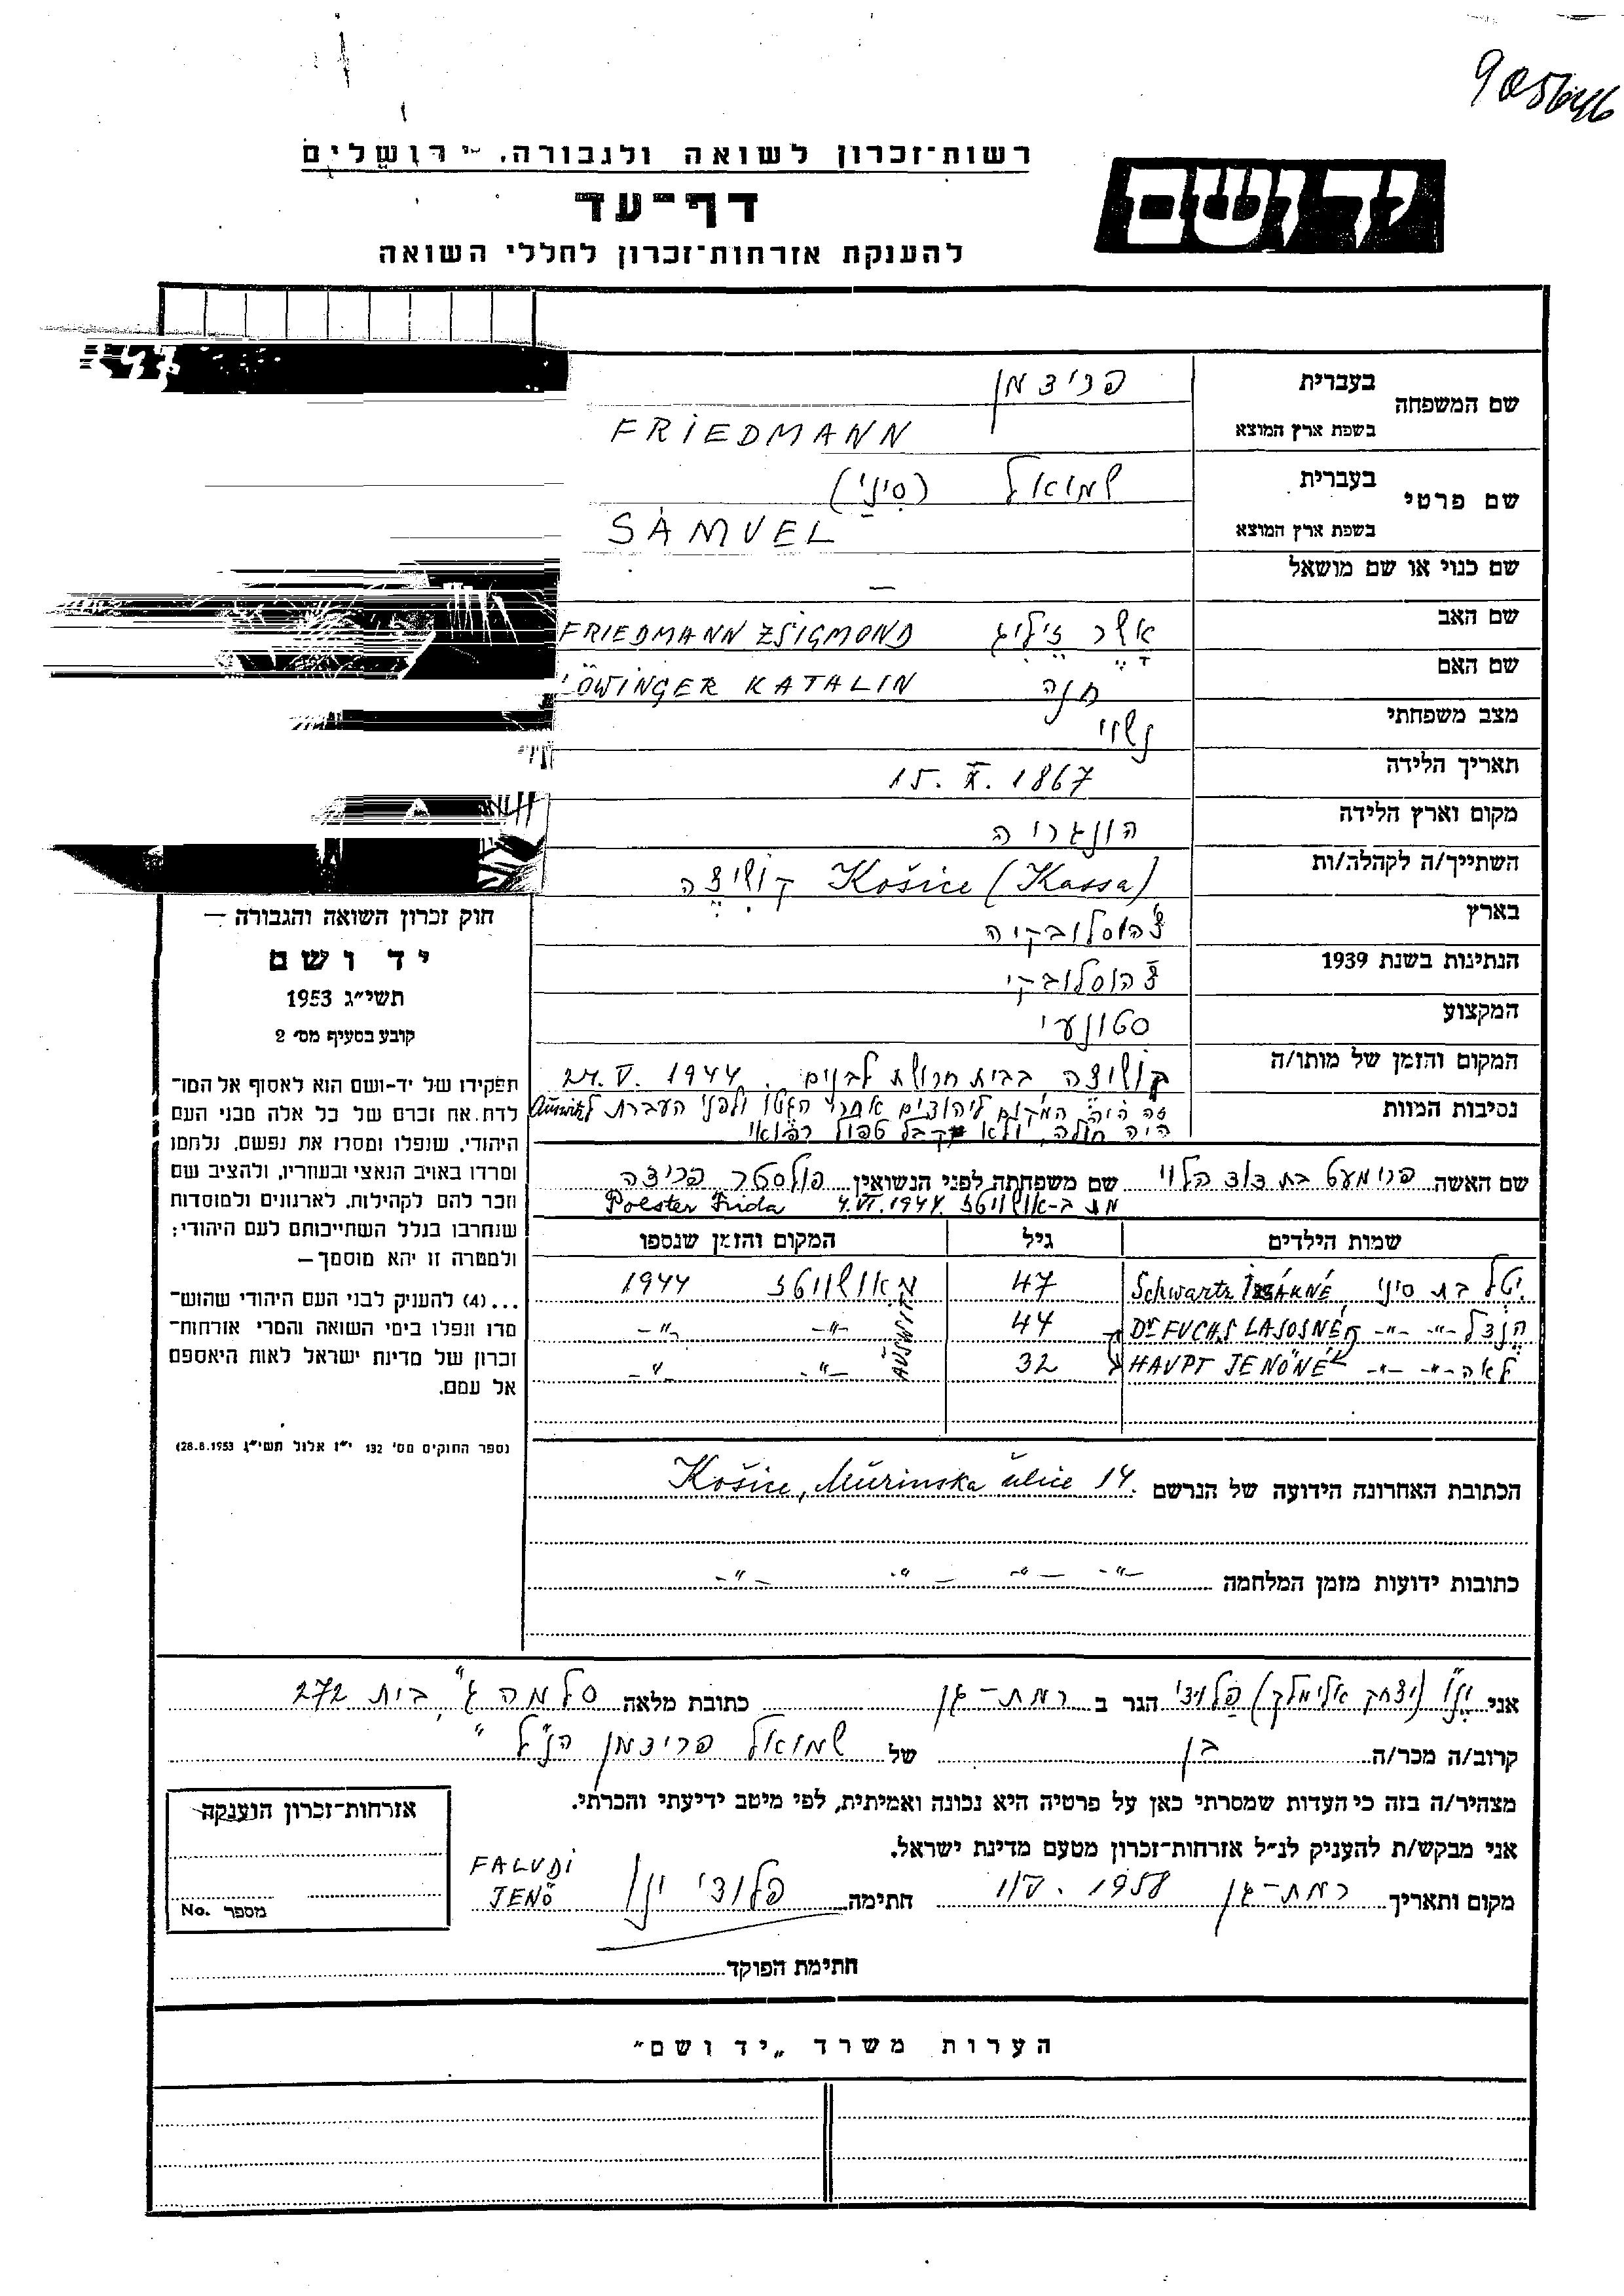 905646
רשות־זכרון לשואה ולגבורה, ירושלים
יד ושם
דף־עד
להענקת אזרחות־זכרון לחללי השואה
שם המשפחה
בעברית פרידמן
בשפת ארץ המוצא FRIEDMANN
שם פרטי
בעברית שמואל (סיני)
בשפת ארץ המוצא SÁMUEL
שם כנוי או שם מושאל —
שם האב אשר זיליג FRIEDMANN ZSIGMOND
שם האם חנה LÖWINGER KATALIN
מצב משפחתי נשוי
תאריך הלידה 15. X. 1867
מקום וארץ הלידה הונגריה
השתייך/ה לקהלה/ות Košice (Kassa) קושיצה
בארץ צ'הוסלובקיה
הנתינות בשנת 1939 צ'הוסלובקי
המקצוע סטונאי
המקום והזמן של מותו/ה קושיצה בבית חרושת לבנים. 24. V. 1944
נסיבות המוות זה היה המקום ליהודים אחרי הגטו ולפני העברת ל Auswitz
היה חולה, ולא קבל טפול רפואי
שם האשה פרומעט בת דוד הלוי שם משפחתה לפני הנשואין פולסטר פרידה
מת ב-אושוויטz 4. VI. 1944. Polster Frida
שמות הילדים גיל המקום והזמן שנספו
יטל בת סיני Schwartz IZSÁKNÉ 47 אושוויטz 1944
הנדל -״- -״- Dr FUCHS LAJOSNÉ 44 -״- -״-
לאה -״- -״- HAUPT JENŐNÉ 32 -״- -״-
AUSWITZ
הכתובת האחרונה הידועה של הנרשם Košice, Műrinska ulice 14.
כתובות ידועות מזמן המלחמה -״- -״- -״- -״-
חוק זכרון השואה והגבורה —
יד ושם
תשי״ג 1953
קובע בסעיף מס׳ 2
תפקידו של יד-ושם הוא לאסוף אל המו־
לדת את זכרם של כל אלה מבני העם
היהודי, שנפלו ומסרו את נפשם, נלחמו
ומרדו באויב הנאצי ובעוזריו, ולהציב שם
וזכר להם לקהילות, לארגונים ולמוסדות
שנחרבו בגלל השתייכותם לעם היהודי;
ולמטרה זו יהא מוסמך—
...(4) להעניק לבני העם היהודי שהוש־
מדו ונפלו בימי השואה והמרי אזרחות־
זכרון של מדינת ישראל לאות היאספם
אל עמם.
(ספר החוקים מס׳ 132 י״ז אלול תשי״ג 28.8.1953)
אני ינו (יצחק אלימלך) פלודי הגר ב רמת-גן כתובת מלאה סלמה ג׳ בית 272
קרוב/ה מכר/ה בן של שמואל פרידמן הנ״ל
מצהיר/ה בזה כי העדות שמסרתי כאן על פרטיה היא נכונה ואמיתית, לפי מיטב ידיעתי והכרתי.
אני מבקש/ת להעניק לנ״ל אזרחות־זכרון מטעם מדינת ישראל.
מקום ותאריך רמת-גן 1/V. 1958 חתימה פלודי ינו FALUDI JENŐ
חתימת הפוקד
אזרחות־זכרון הוענקה
מספר No.
הערות משרד „יד ושם״